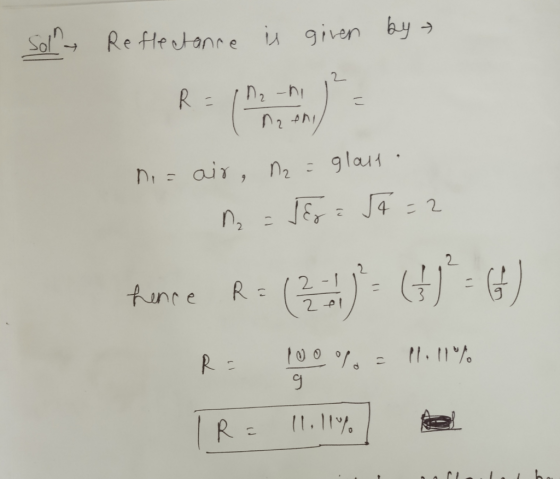 Solⁿ → Reflectance is given by →
R = ((n₂ - n₁)/(n₂ + n₁))² =
n₁ = air, n₂ = glass.
n₂ = √εᵣ = √4 = 2
hence R = ((2 - 1)/(2 + 1))² = (1/3)² = (1/9)
R = 100/9 % = 11.11%
R = 11.11%